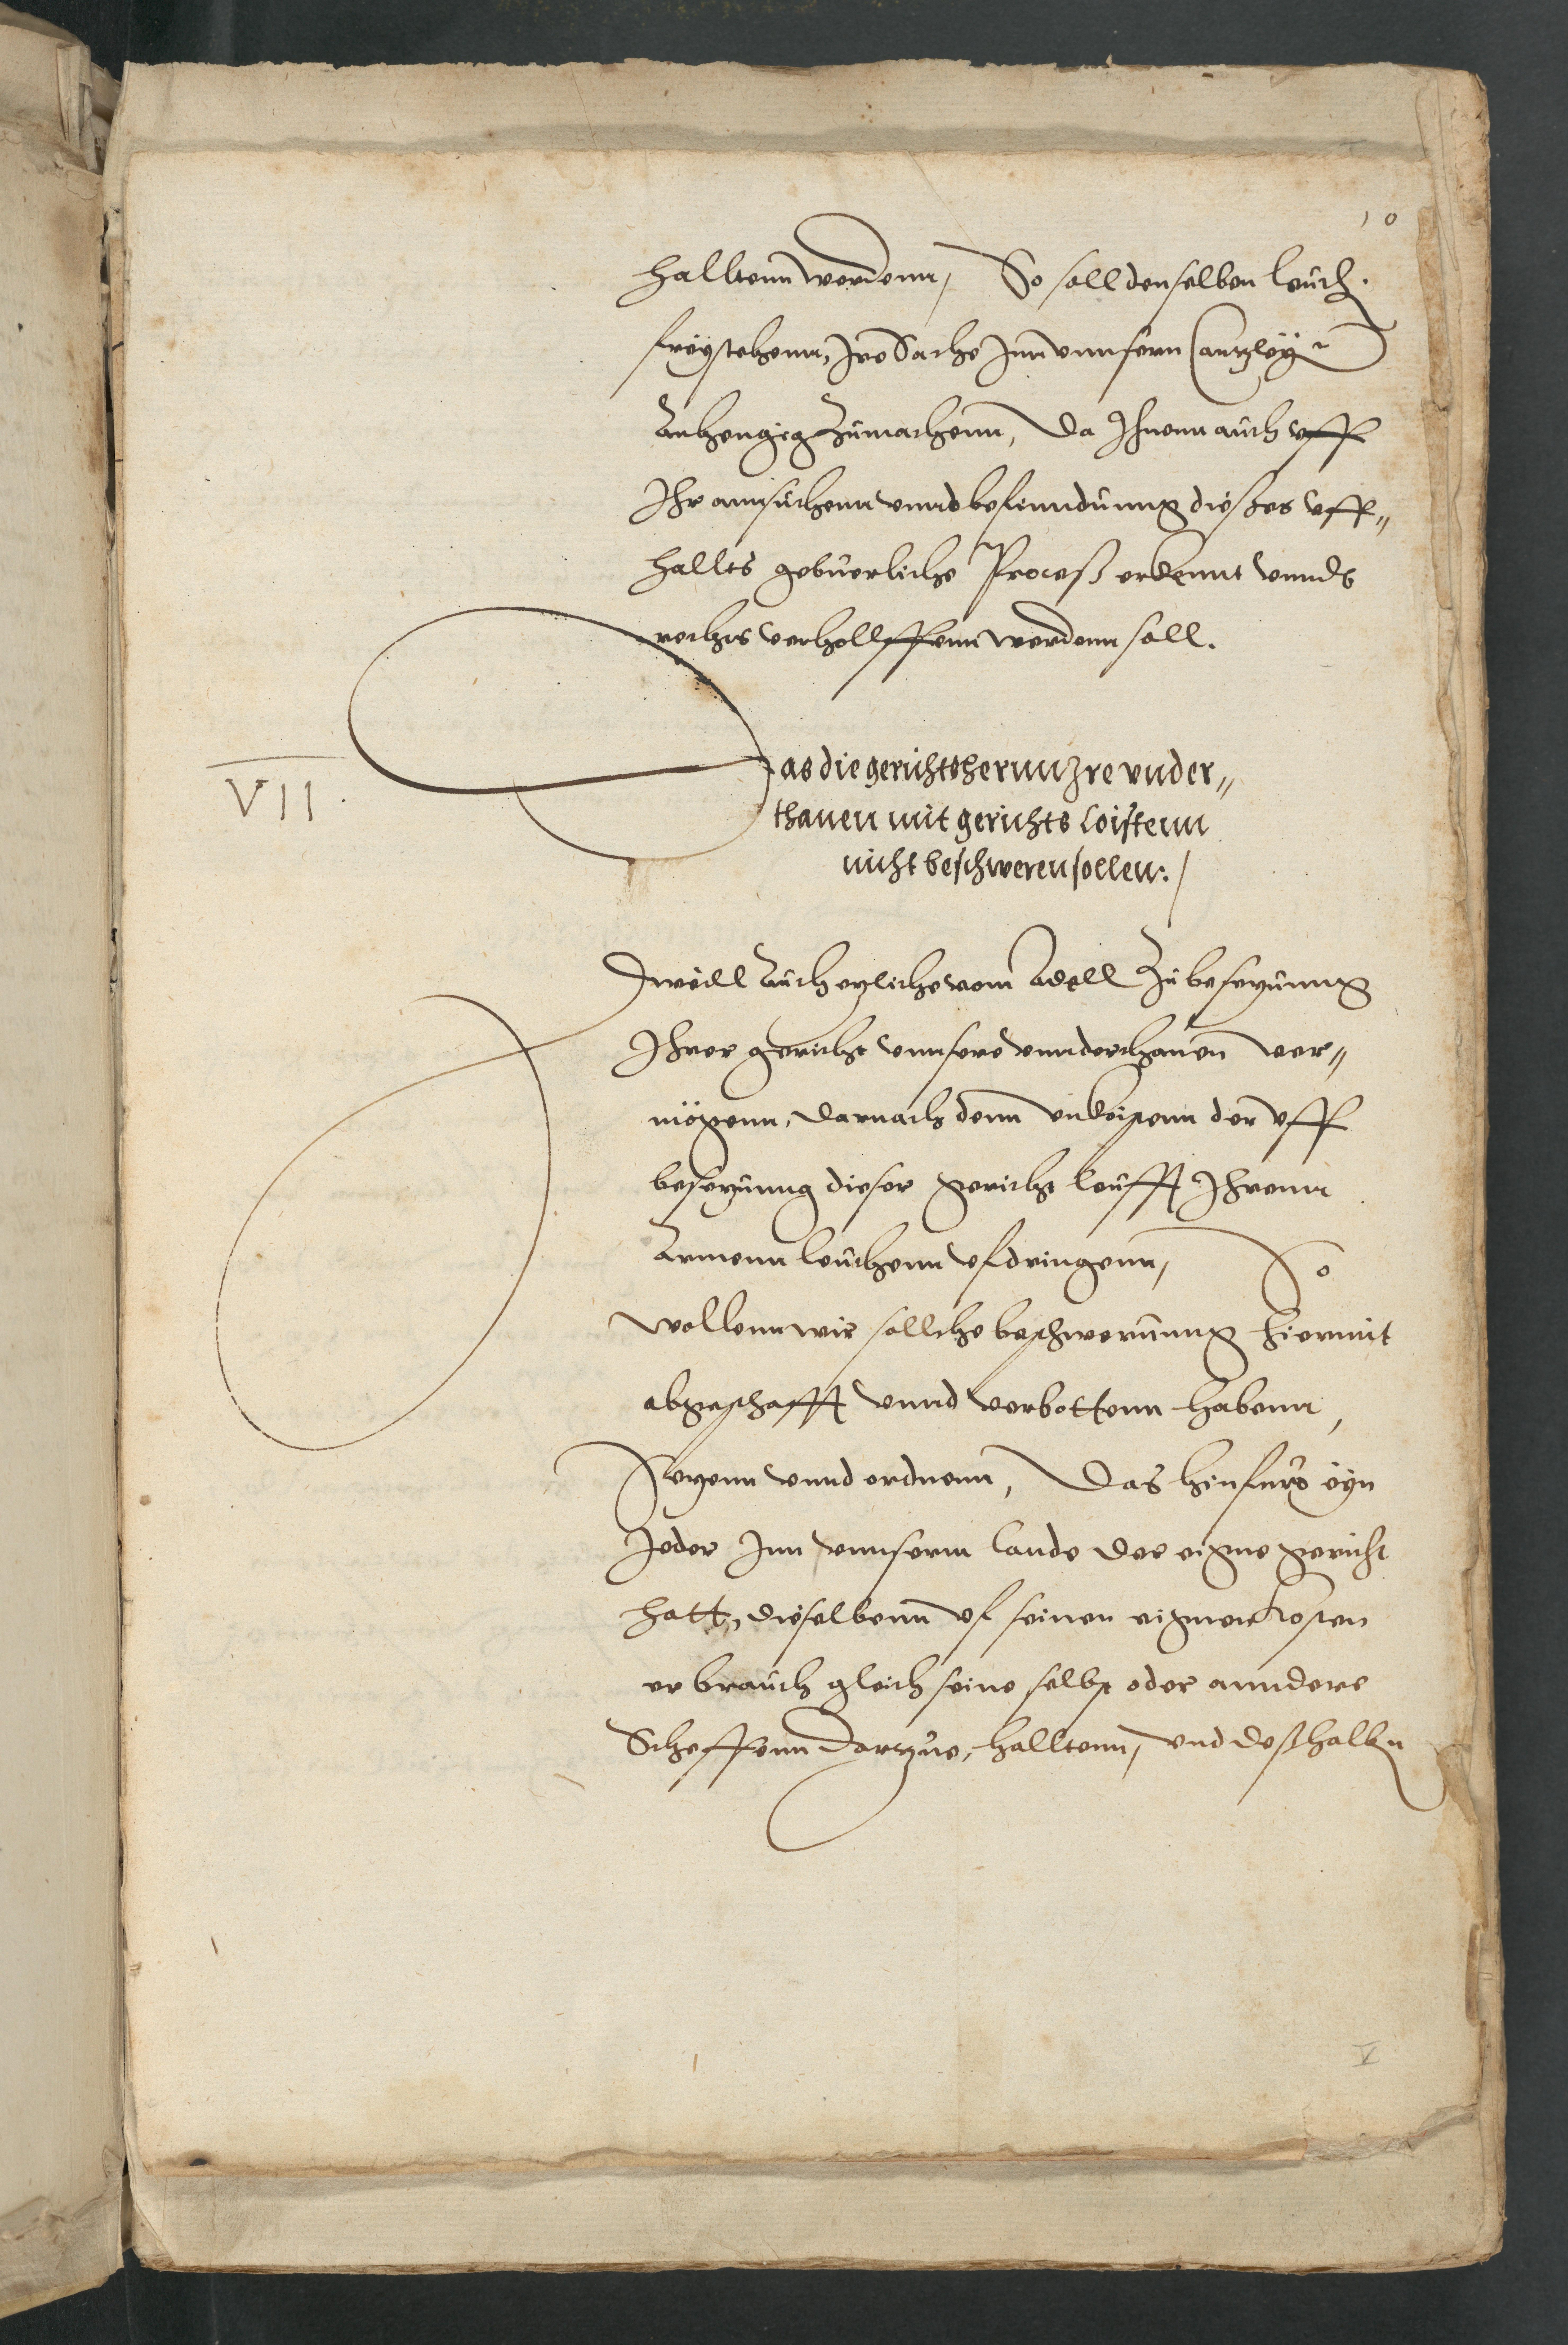 10
halltenn werdenn, So soll denselben leuth.
freystehenn, Ire Sache Inn vnnsern Cantzley
Anhengig Zumachenn, Da Ihnenn auch vff
Ihr annsuchenn vnnd befinndung dießes vff„
hallts gebuerliche Proceß erkennt vnnds
rechts verhollffenn werdenn soll.
VII.
Das die gerichtsherrnn Ire vnder„
thanen mit gerichts Coistenn
nicht beschweren sollen:/
Dweill Auch etzliche vom Adell Zu besetzunng
Ihrer gericht vnnsere vnnderthanen ver„
mögenn, darnach denn vnkoistenn der vff
besetzunng dieser gericht leufft Ihrenn
Armenn leuthenn vfdringenn, So
wollenn wir sollche beschwerunng hiermit
abgeschafft vnnd verbottenn habenn,
Setzenn vnnd ordnenn, Das hinfuro eyn
Jeder Inn vnnserm Lande der eigne gericht
hatt, dieselbenn vf seinen eignen Kosten
er brauch gleich seine selbst oder annders
Scheffenn dartzue, halltenn, vnd deßhalben
V